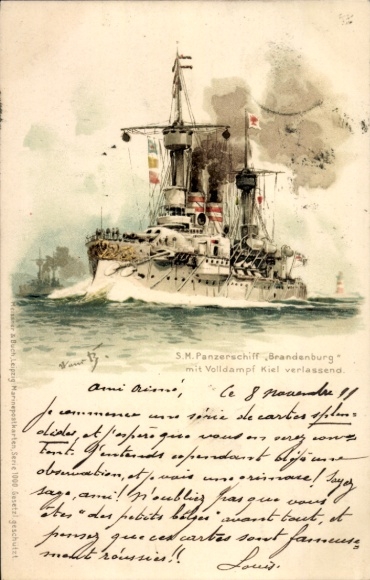 S.M. Panzerschiff „Brandenburg"
mit Volldampf Kiel verlassend.
Meissner & Buch, Leipzig, Marinepostkarten, Serie 1000 Gesetzl. geschützt.
Ami Aimé, Ce 8 novembre 99
Je commence une série de cartes splen-
dides, et j'espère que vous en serez con-
tent. J'entends cependant déjà une
observation, et je vois une grimace! Soyez
sage, ami! N'oubliez pas que vous
êtes "des petits belges" avant tout, et
pensez que ces cartes sont fameuse-
ment réussies!!
Louis.